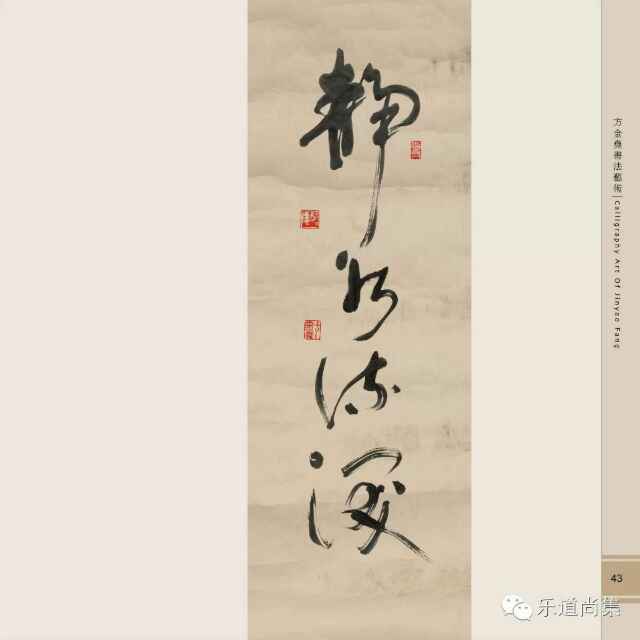 静水流深
方金堯書法藝術 | Calligraphy Art Of Jinyao Fang
43
乐道尚集